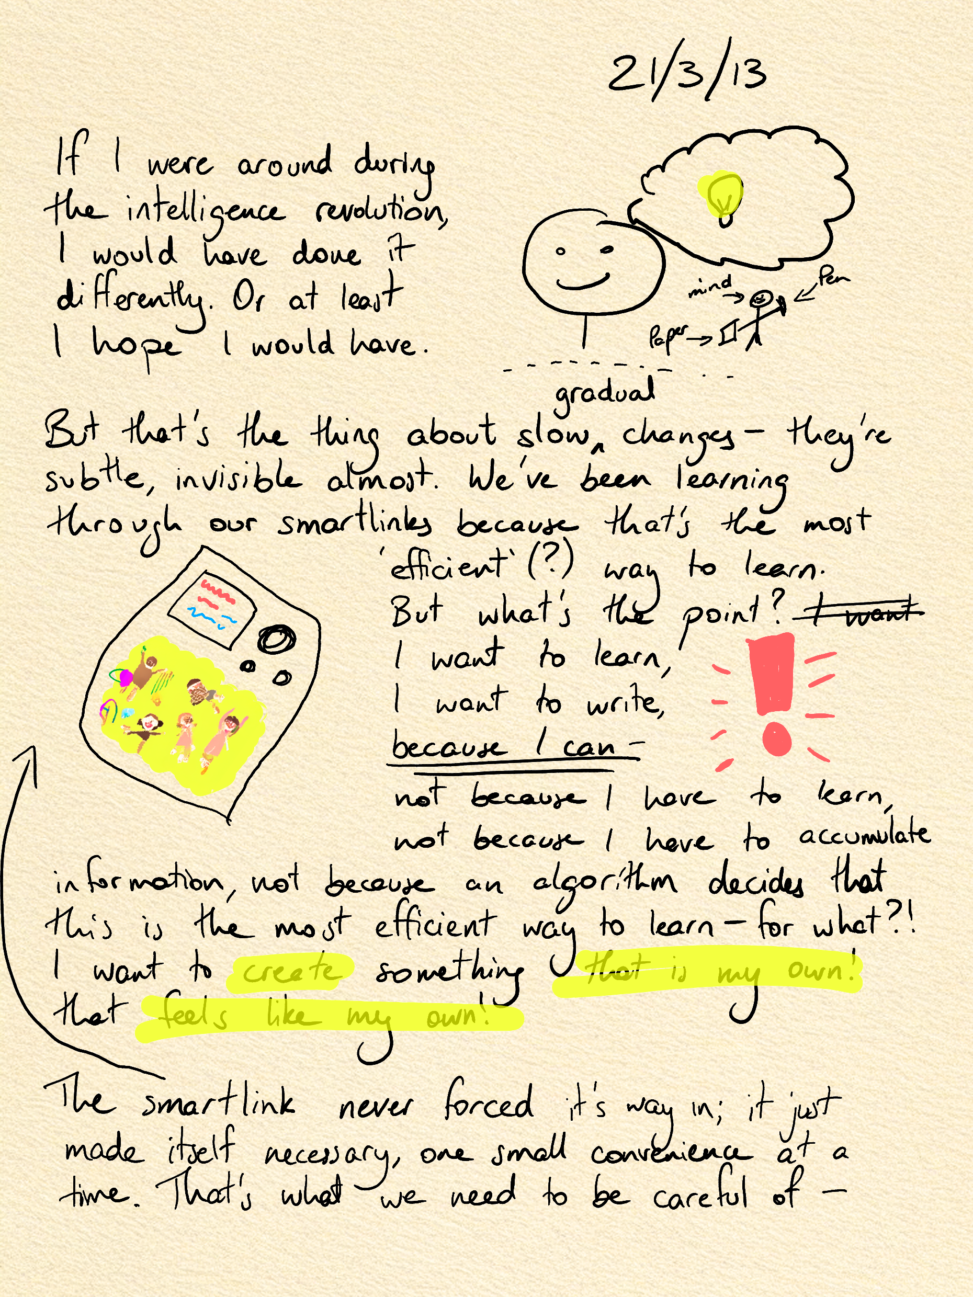 21/3/13
If I were around during
the intelligence revolution,
I would have done it
differently. Or at least
I hope I would have.
mind
Pen
Paper
gradual
But that's the thing about slow ‸ changes – they're
subtle, invisible almost. We've been learning
through our smartlinks because that's the most
'efficient' (?) way to learn.
But what's the point? I want
I want to learn,
I want to write,
because I can –
not because I have to learn,
not because I have to accumulate
information, not because an algorithm decides that
this is the most efficient way to learn – for what?!
I want to create something that is my own!
that feels like my own!
The smartlink never forced it's way in; it just
made itself necessary, one small convenience at a
time. That's what we need to be careful of –